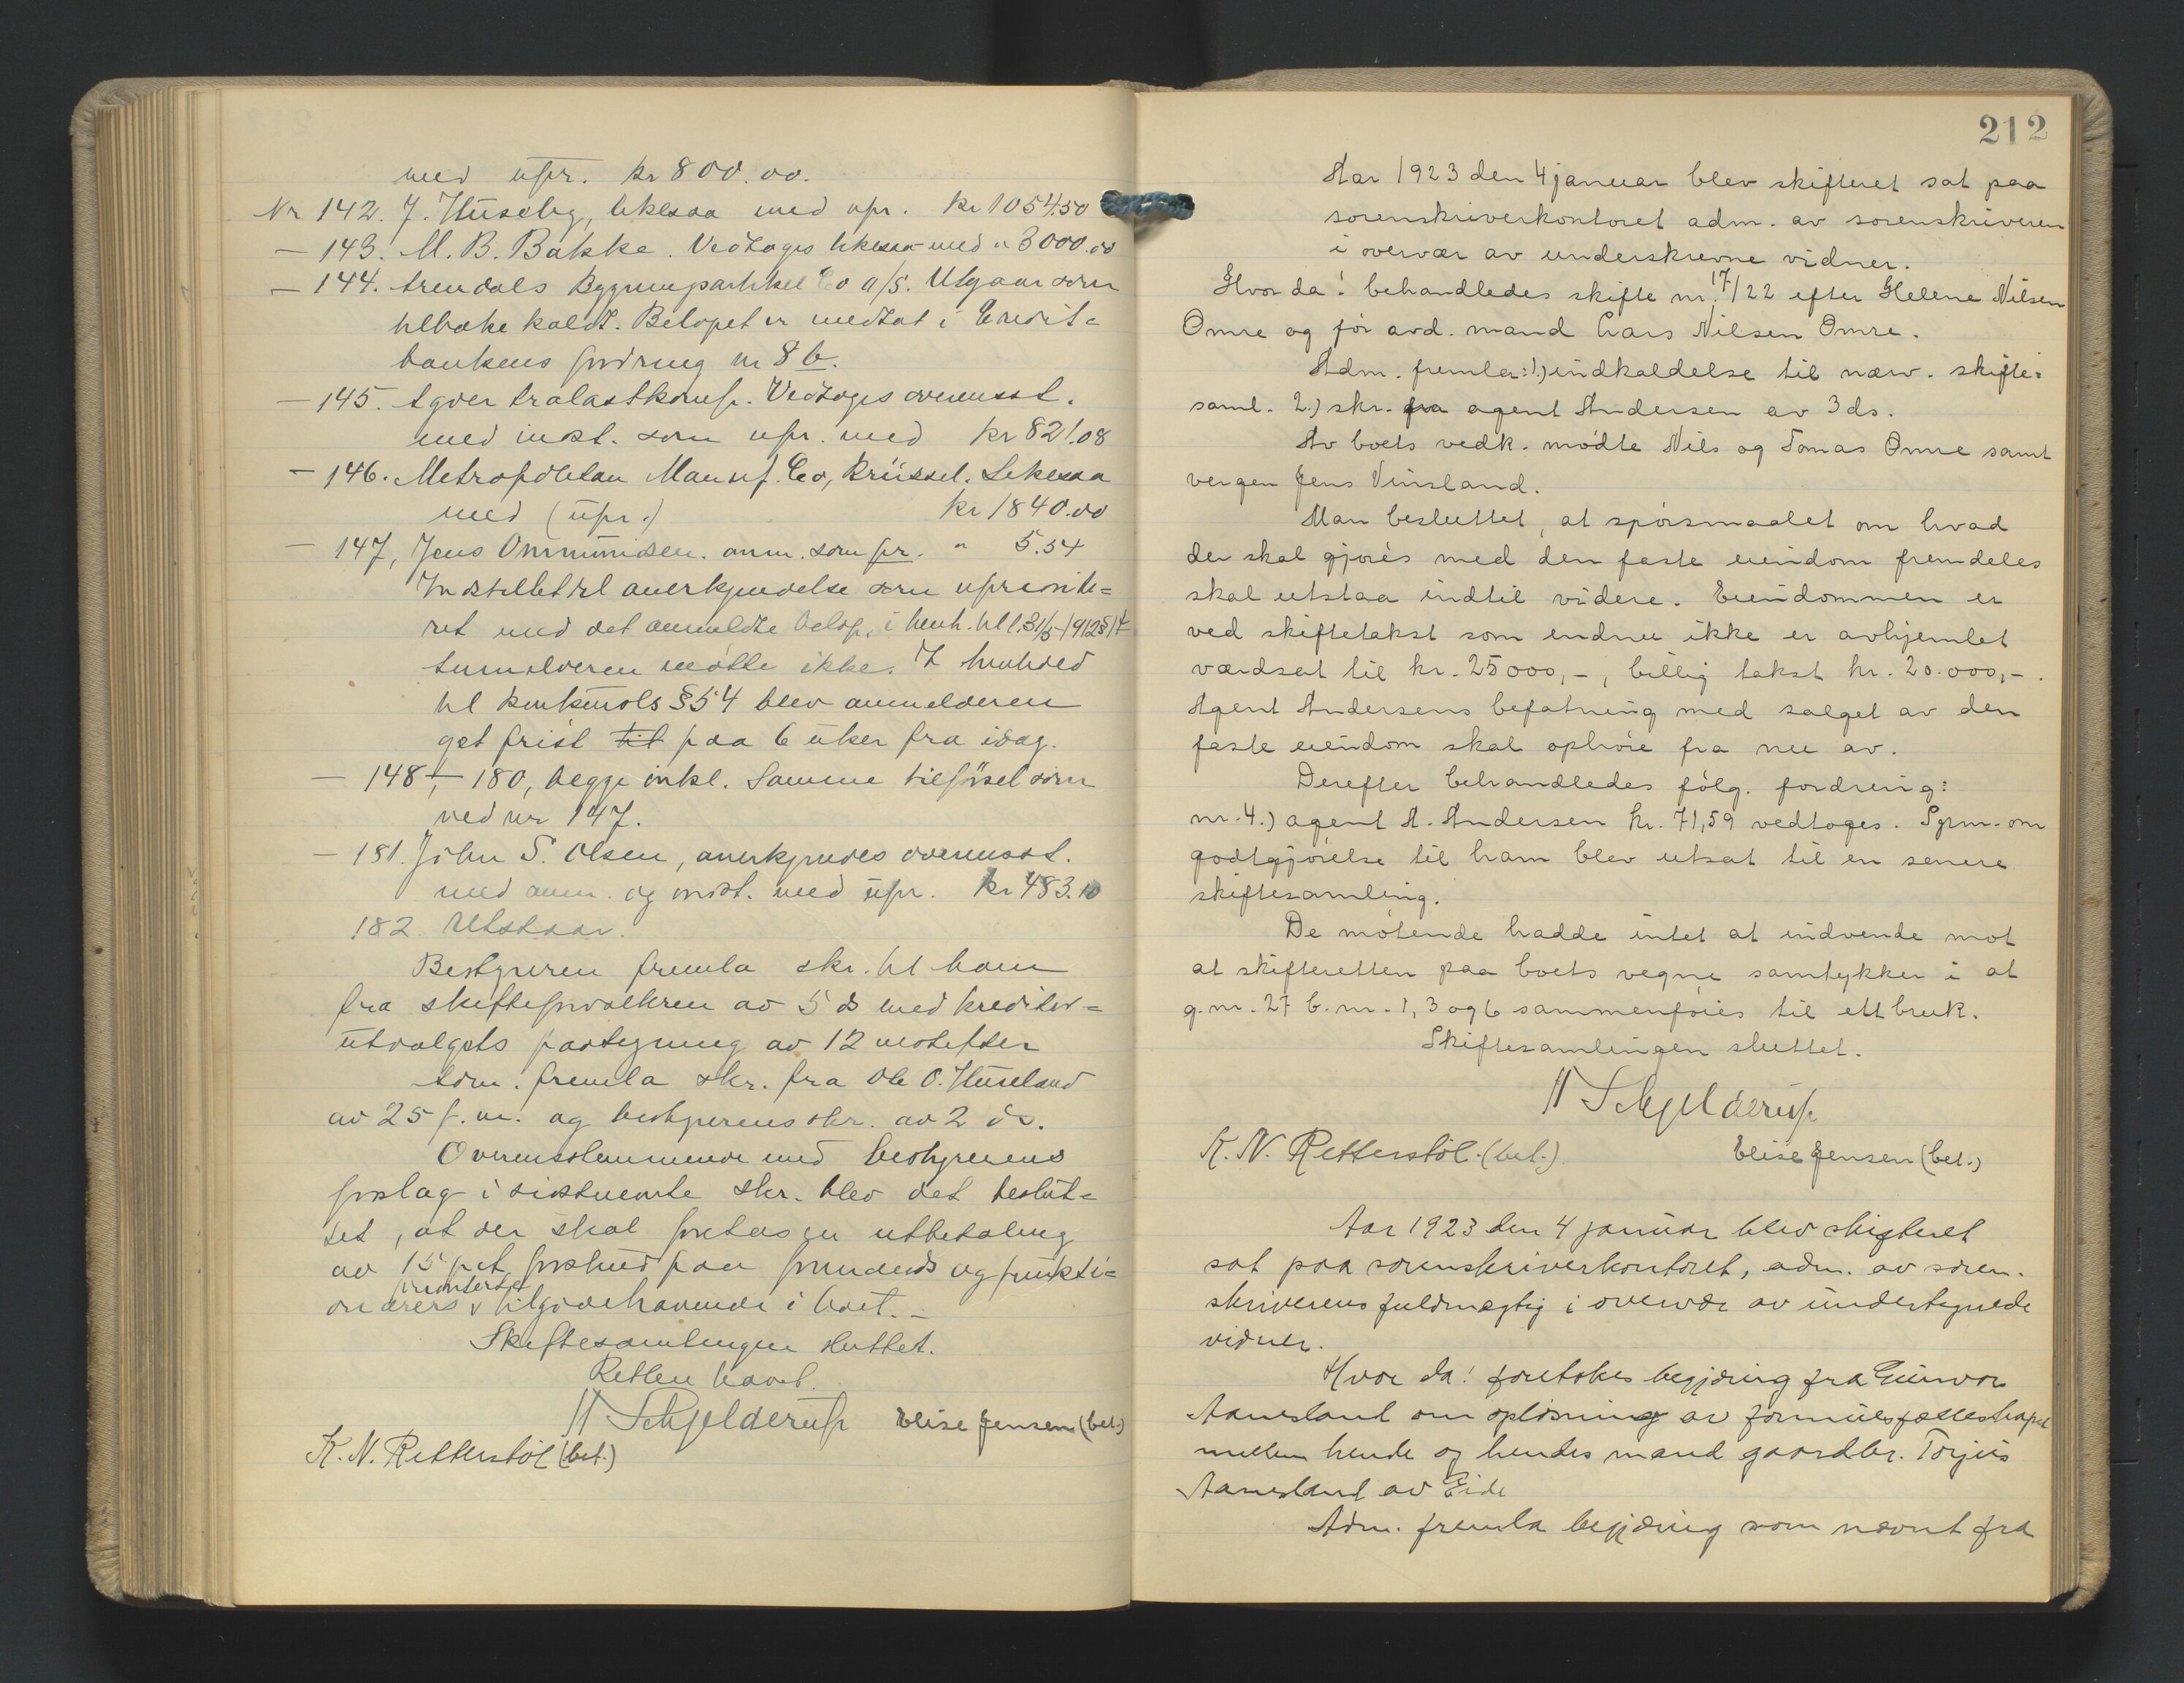 med upr. kr 800.00.
Nr 142. J. Huseby, likesaa med upr. kr 1054.50
— 143. M. B. Bakke. Vedtoges likesaa med " 3000.00
— 144. Arendals Bygningsartikel Co a/s. Utgaar som
tilbakekaldt. Beløpet er medtat i Credit=
bankens fordring nr 8 b.
— 145. Agder tralastkomp. Vedtoges overensst.
med inst. som upr. med kr 821.08
— 146. Metropolitan Manuf. Co, Brüssel. Likesaa
med (upr.) kr 1840.00
— 147, Jens Ommundsen. anm. som pr. " 5.54
Indstillet til anerkjendelse som upriorite=
ret med det anmeldte beløp, i henh. til l. 31/5-1912 §
Anmelderen møtte ikke. I henhold
til konkursls § 54 blev anmelderen
get frist til paa 6 uker fra idag.
— 148 — 180, begge inkl. Samme tilførsel som
ved nr 147.
— 181. John S. Olsen, anerkjendes overensst.
med anm. og indst. med upr. kr 483.10
182. Utstaar.
Bestyreren fremla skr. til ham
fra skifteforvalteren av 5 ds med kreditor=
utvalgets paategning av 12 næstefter
Adm. fremla skr. fra Ole O. Huseland
av 25 f. m. og bestyrerens skr. av 2 ds.
Overensstemmende med bestyrerens
forslag i sistnevnte skr. blev det beslut=
tet, at der skal foretas en utbetaling
av 15 pct. forskud paa formænds og funkti=
prioriterte
onærers v tilgodehavende i boet. –
Skiftesamlingen sluttet.
Retten hævet.
H Schjelderup Elise Jensen (bet.)
K. N. Retterstøl (bet.)
212
Aar 1923 den 4 januar blev skifteret sat paa
sorenskriverkontoret adm. av sorenskriveren
i overvær av underskrevne vidner.
Hvor da! behandledes skifte nr. 17/22 efter Helene Nilsen
Omre og før avd. mand Lars Nilsen Omre.
Adm. fremla: 1.) indkaldelse til nærv. skifte=
saml. 2.) skr. fra agent Andersen av 3 ds.
Av boets vedk. mødte Nils og Tomas Omre samt
vergen Jens Vinsland.
Man besluttet, at spørsmaalet om hvad
der skal gjøres med den faste eiendom fremdeles
skal utstaa indtil videre. Eiendommen er
ved skiftetakst som endnu ikke er avhjemlet
værdsat til kr. 25000,-, billig takst kr. 20.000,-.
Agent Andersens befatning med salget av den
faste eiendom skal ophøre fra nu av.
Derefter behandledes følg. fordring:
nr. 4.) agent A. Andersen kr. 71,59 vedtoges. Spm. om
godtgjørelse til ham blev utsat til en senere
skiftesamling.
De møtende hadde intet at indvende mot
at skifteretten paa boets vegne samtykker i at
g.nr. 27 b.nr. 1, 3 og 6 sammenføies til ett bruk.
Skiftesamlingen sluttet.
H Schjelderup
K. N. Retterstøl. (bet.) Elise Jensen (bet.)
Aar 1923 den 4 januar blev skifteret
sat paa sorenskriverkontoret, adm. av soren.
skriverens fuldmægtig i overvær av undertegnede
vidner.
Hvor da! foretokes begjæring fra Gunvor
Aanesland om opløsning av formuesfællesskapet
mellem hende og hendes mand gaardbr. Torjus
Aanesland av Eide
Adm. fremla begjæring som nævnt fra